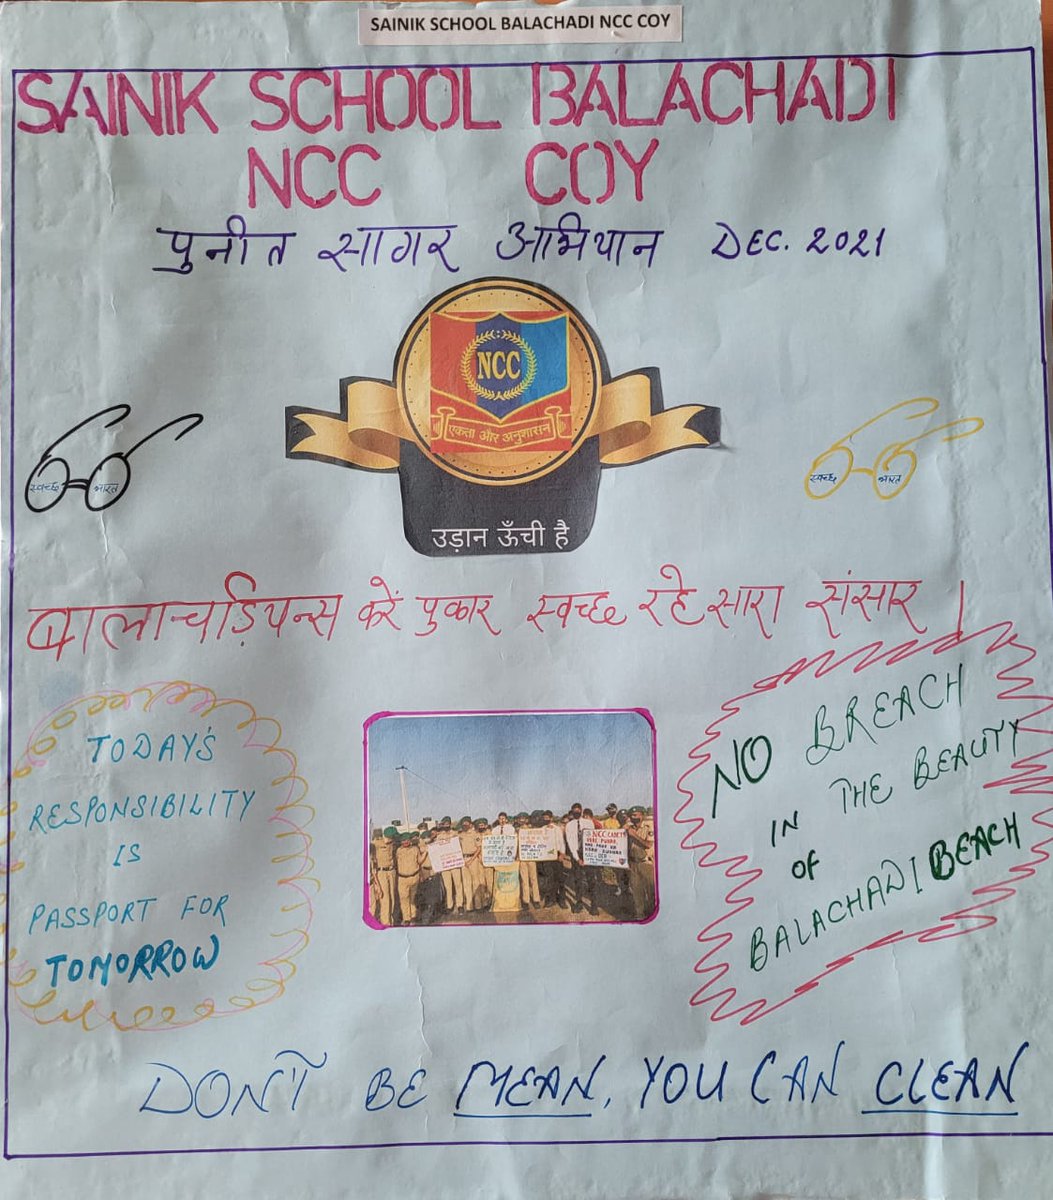 SAINIK SCHOOL BALACHADI NCC COY
SAINIK SCHOOL BALACHADI
NCC COY
पुनीत सागर अभियान DEC. 2021
NCC
एकता और अनुशासन
स्वच्छ भारत
स्वच्छ भारत
उड़ान ऊँची है
बालाचड़ियन्स करें पुकार स्वच्छ रहे सारा संसार।
TODAY'S
RESPONSIBILITY
IS
PASSPORT FOR
TOMORROW
NO BREACH
IN THE BEAUTY
OF
BALACHADI BEACH
DON'T BE MEAN, YOU CAN CLEAN